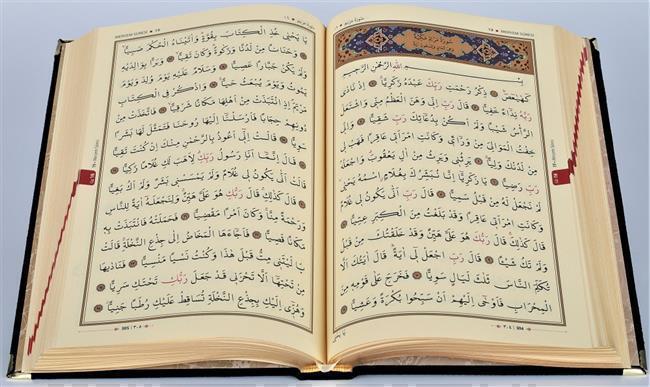 MERYEM SURESİ
بِسْمِ اللّٰهِ الرَّحْمٰنِ الرَّحِيمِ
كٓهٰيٰعٓصٓ ذِكْرُ رَحْمَتِ رَبِّكَ عَبْدَهُ زَكَرِيَّا اِذْ نَادٰى
رَبَّهُ نِدَٓاءً خَفِيًّا قَالَ رَبِّ اِنِّي وَهَنَ الْعَظْمُ مِنِّي وَاشْتَعَلَ
الرَّأْسُ شَيْبًا وَلَمْ اَكُنْ بِدُعَٓائِكَ رَبِّ شَقِيًّا وَاِنِّي
خِفْتُ الْمَوَالِيَ مِنْ وَرَٓائِي وَكَانَتِ امْرَاَتِي عَاقِرًا فَهَبْ لِي
مِنْ لَدُنْكَ وَلِيًّا يَرِثُنِي وَيَرِثُ مِنْ اٰلِ يَعْقُوبَ وَاجْعَلْهُ
رَبِّ رَضِيًّا يَا زَكَرِيَّٓا اِنَّا نُبَشِّرُكَ بِغُلَامٍ اسْمُهُ يَحْيٰى
لَمْ نَجْعَلْ لَهُ مِنْ قَبْلُ سَمِيًّا قَالَ رَبِّ اَنّٰى يَكُونُ لِي غُلَامٌ
وَكَانَتِ امْرَاَتِي عَاقِرًا وَقَدْ بَلَغْتُ مِنَ الْكِبَرِ عِتِيًّا
قَالَ كَذٰلِكَ قَالَ رَبُّكَ هُوَ عَلَيَّ هَيِّنٌ وَقَدْ خَلَقْتُكَ مِنْ قَبْلُ
وَلَمْ تَكُ شَيْئًا قَالَ رَبِّ اجْعَلْ لِٓي اٰيَةً قَالَ اٰيَتُكَ اَلَّا
تُكَلِّمَ النَّاسَ ثَلٰثَ لَيَالٍ سَوِيًّا فَخَرَجَ عَلٰى قَوْمِهِ مِنَ
الْمِحْرَابِ فَاَوْحٰٓى اِلَيْهِمْ اَنْ سَبِّحُوا بُكْرَةً وَعَشِيًّا
٣٠٤ 304
MERYEM SURESİ
سورة مريم
يَا يَحْيٰى خُذِ الْكِتَابَ بِقُوَّةٍ وَاٰتَيْنَاهُ الْحُكْمَ صَبِيًّا
وَحَنَانًا مِنْ لَدُنَّا وَزَكٰوةً وَكَانَ تَقِيًّا وَبَرًّا بِوَالِدَيْهِ
وَلَمْ يَكُنْ جَبَّارًا عَصِيًّا وَسَلَامٌ عَلَيْهِ يَوْمَ وُلِدَ وَيَوْمَ
يَمُوتُ وَيَوْمَ يُبْعَثُ حَيًّا وَاذْكُرْ فِي الْكِتَابِ
مَرْيَمَ اِذِ انْتَبَذَتْ مِنْ اَهْلِهَا مَكَانًا شَرْقِيًّا فَاتَّخَذَتْ مِنْ
دُونِهِمْ حِجَابًا فَاَرْسَلْنَٓا اِلَيْهَا رُوحَنَا فَتَمَثَّلَ لَهَا بَشَرًا
سَوِيًّا قَالَتْ اِنِّٓي اَعُوذُ بِالرَّحْمٰنِ مِنْكَ اِنْ كُنْتَ تَقِيًّا
قَالَ اِنَّمَٓا اَنَا رَسُولُ رَبِّكِ لِاَهَبَ لَكِ غُلَامًا زَكِيًّا
قَالَتْ اَنّٰى يَكُونُ لِي غُلَامٌ وَلَمْ يَمْسَسْنِي بَشَرٌ وَلَمْ اَكُ بَغِيًّا
قَالَ كَذٰلِكِ قَالَ رَبُّكِ هُوَ عَلَيَّ هَيِّنٌ وَلِنَجْعَلَهُٓ اٰيَةً لِلنَّاسِ
وَرَحْمَةً مِنَّا وَكَانَ اَمْرًا مَقْضِيًّا فَحَمَلَتْهُ فَانْتَبَذَتْ بِهِ
مَكَانًا قَصِيًّا فَاَجَٓاءَهَا الْمَخَاضُ اِلٰى جِذْعِ النَّخْلَةِ قَالَتْ
يَا لَيْتَنِي مِتُّ قَبْلَ هٰذَا وَكُنْتُ نَسْيًا مَنْسِيًّا فَنَادٰيهَا
مِنْ تَحْتِهَٓا اَلَّا تَحْزَنِي قَدْ جَعَلَ رَبُّكِ تَحْتَكِ سَرِيًّا
وَهُزِّٓي اِلَيْكِ بِجِذْعِ النَّخْلَةِ تُسَاقِطْ عَلَيْكِ رُطَبًا جَنِيًّا
305 ٣٠٥